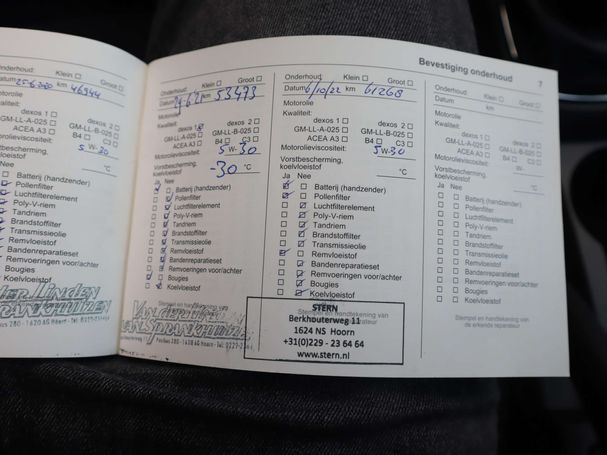 Bevestiging onderhoud 7
Onderhoud: Klein Groot
Datum 25-6-2020 km 46944
Motorolie
Kwaliteit:
dexos 1 dexos 2
GM-LL-A-025 GM-LL-B-025
ACEA A3 B4 C3
Motorolieviscositeit:
5 W-30
Vorstbescherming,
koelvloeistof °C
Nee
Batterij (handzender)
Pollenfilter
Luchtfilterelement
Poly-V-riem
Tandriem
Brandstoffilter
Transmissieolie
Remvloeistof
Bandenreparatieset
Remvoeringen voor/achter
Bougies
Koelvloeistof
Onderhoud: Klein Groot
Datum km 53473
Motorolie
Kwaliteit:
dexos 1 dexos 2
GM-LL-A-025 GM-LL-B-025
ACEA A3 B4 C3
Motorolieviscositeit:
5 W-30
Vorstbescherming,
koelvloeistof -30 °C
Ja Nee
Batterij (handzender)
Pollenfilter
Luchtfilterelement
Poly-V-riem
Tandriem
Brandstoffilter
Transmissieolie
Remvloeistof
Bandenreparatieset
Remvoeringen voor/achter
Bougies
Koelvloeistof
Stempel en handtekening van
Onderhoud: Klein Groot
Datum 6/10/22 km 61268
Motorolie
Kwaliteit:
dexos 1 dexos 2
GM-LL-A-025 GM-LL-B-025
ACEA A3 B4 C3
Motorolieviscositeit:
5 W-30
Vorstbescherming,
koelvloeistof °C
Ja Nee
Batterij (handzender)
Pollenfilter
Luchtfilterelement
Poly-V-riem
Tandriem
Brandstoffilter
Transmissieolie
Remvloeistof
Bandenreparatieset
Remvoeringen voor/achter
Bougies
Koelvloeistof
STERN
Berkhouterweg 11
1624 NS Hoorn
+31(0)229 - 23 64 64
www.stern.nl
Onderhoud: Klein Groot
Datum km
Motorolie
Kwaliteit:
dexos 1 dexos 2
GM-LL-A-025 GM-LL-B-025
ACEA A3 B4 C3
Motorolieviscositeit:
W-
Vorstbescherming,
koelvloeistof °C
Ja Nee
Batterij (handzender)
Pollenfilter
Luchtfilterelement
Poly-V-riem
Tandriem
Brandstoffilter
Transmissieolie
Remvloeistof
Bandenreparatieset
Remvoeringen voor/achter
Bougies
Koelvloeistof
Stempel en handtekening van
de erkende reparateur